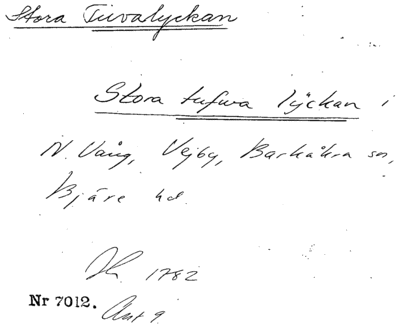 Stora Tuvalyckan
Stora tufwa lÿckan i
N. Vång, Vejby, Barkåkra sn,
Bjäre hd.
1782
Nr 7012.